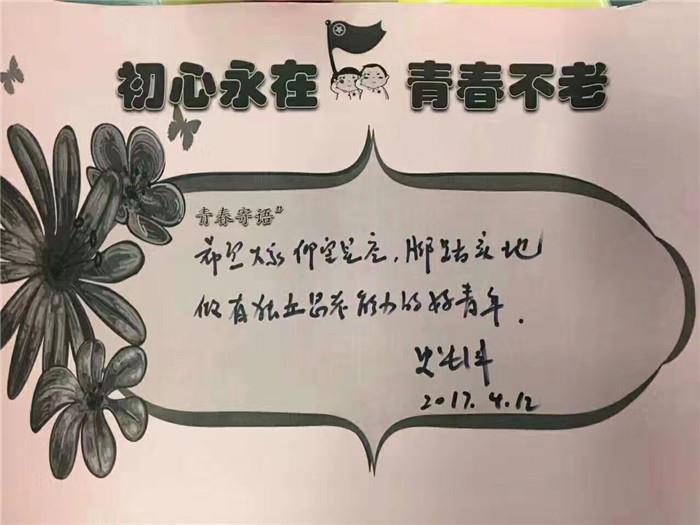 初心永在 青春不老
青春寄语
希望大家仰望星空，脚踏实地
做有独立思考能力的好青年．
2017.4.12